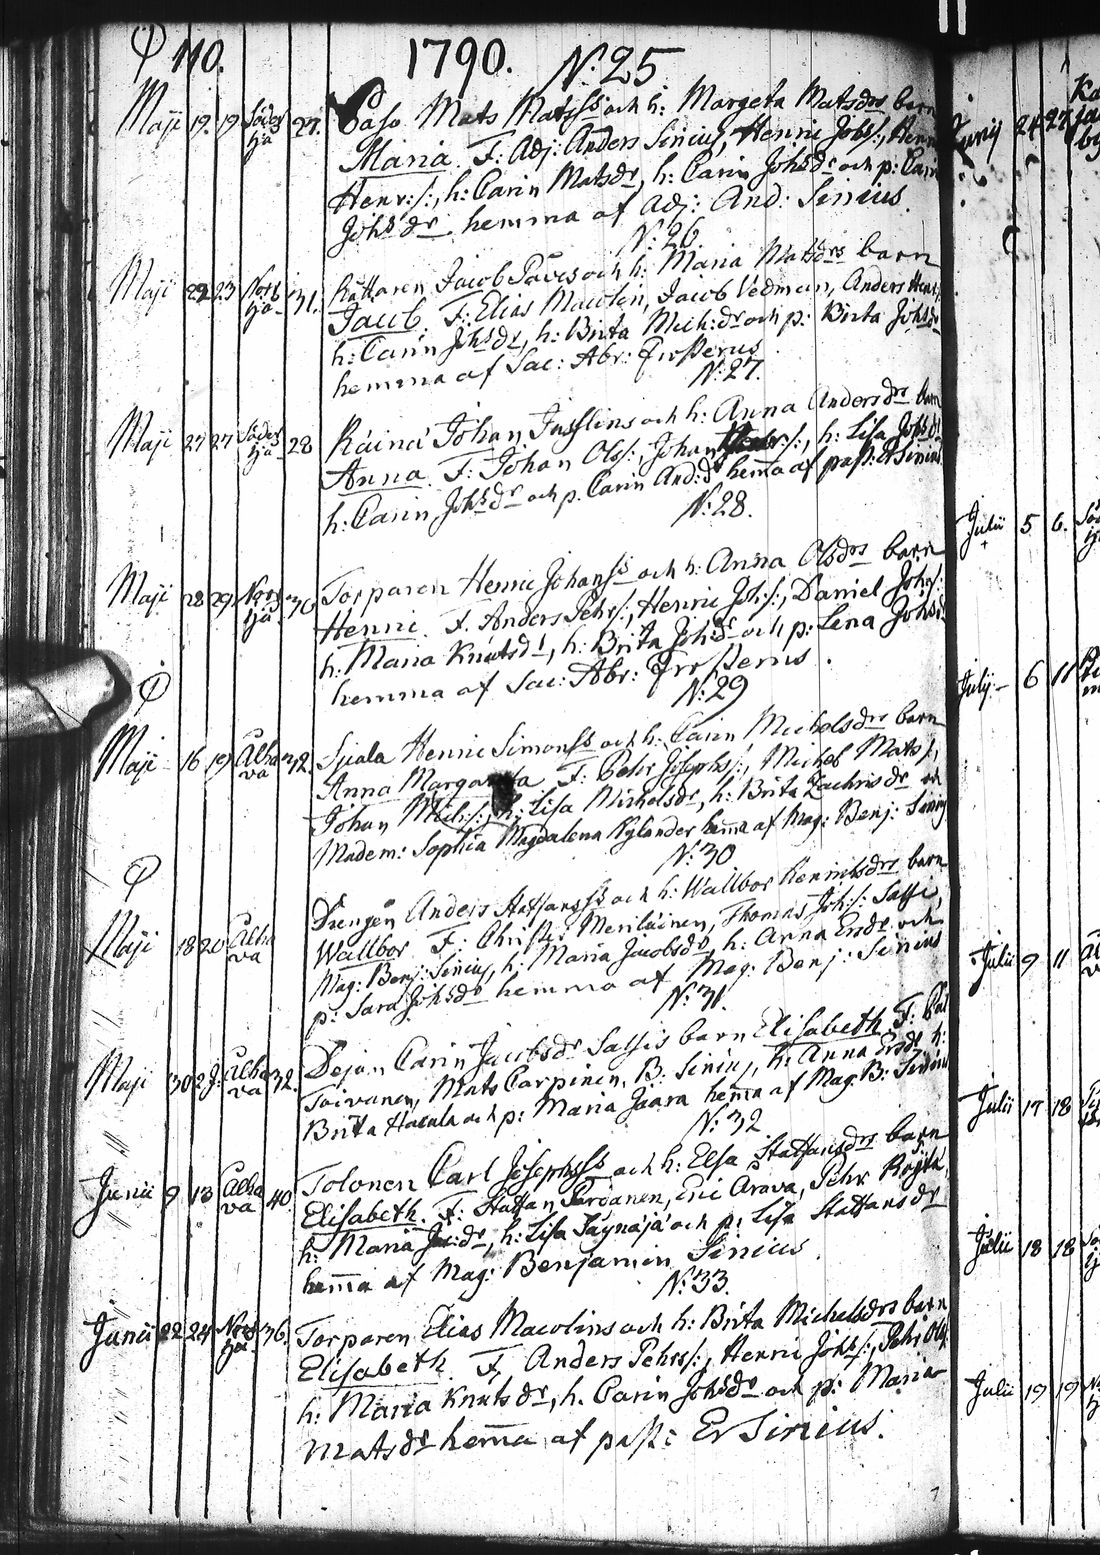 110. 1790. N:25
Maji 19. 19 Söder 27. Paso Mats Matsss och h: Margeta Matsdrs barn
tja Maria. F: Adj: Anders Sinius, Henric Johs/:, Henr
Henr:/:, h: Carin Matsdr, h: Carin Johsdr och p: Carin
Johsdr hemma af Adj: And: Sinius.
N:26.
Maji 22 23 Norr 31. Rättaren Jacob Påves och h: Maria Matsdrs barn
tja Jacob. F: Elias Macolin, Jacob Vedman, Anders Henr/:
h: Carin Johsdr, h: Brita Mich:dr och p: Brita Johsdr
hemma af Sac: Abr: Frosterus
N:27.
Maji 27 27 Söder 28 Räinä Johan Jusslins och h: Anna Andersdrs barn
tja Anna. F: Johan Ols/:, Johan h: Lisa Johsdr
h: Carin Johsdr och p. Carin And:dr hema af past: Er Sinius
N:28.
Maji 28 29 Norr 36 Torparen Henric Johanss och h: Anna Olsdrs barn
tja Henric. F. Anders Pehrs/:, Henric Joh:/:, Daniel Johs/:
h: Maria Knutsdr, h: Brita Johsdr och p: Lena Johsdr
hemma af Sac: Abr: Frosterus.
N:29
Maji 16 19 Alha 32. Sjuala Henric Simonss och h: Carin Michelsdrs barn
va Anna Margareta F: Pehr Josephs/:, Michel Mats/:,
Johan Mich:/:, h: Lisa Michelsdr, h: Brita Zachrisdr och
Madem: Sophia Magdalena Nylander hema af Mag: Benj: Sinius
N:30
Maji 18 20 Alha Drengen Anders Staffansss och h: Wallbor Henricsdrs barn
va Wallbor F: Christer Meriläinen, Thomas Joh:/: Sassi,
Mag: Benj: Sinius, h: Maria Jacobsdr, h: Anna Ersdr och
p: Sara Johsdr hemma af Mag: Benj: Sinius
N:31.
Maji 30 2J: Alha 32. Dejan Carin Jacobsdr Sassis barn Elisabeth F: Pål
va Toivanen, Mats Carpinen, B. Sinius, h: Anna Ersdr h:
Brita Hacala och p: Maria Jaara hema af Mag: B: Sinius
N:32
Junii 9 13 Alha 40. Tolonen Carl Josephsss och h: Elsa Staffansdrs barn
va Elisabeth. F: Staffan Pardanen, Eric Arava, Pehr Räjtä
h: Maria Jac:dr, h: Lisa Säynäjä och p: Lisa Staffansdr
hema af Mag: Benjamin Sinius.
N:33.
Junii 22 24 Norr 36. Torparen Elias Macolins och h: Brita Michelsdrs barn
tja Elisabeth. F. Anders Pehrs/:, Henric Johs/:, Pehr Ols/:
h: Maria Knutsdr, h. Carin Johsdr och p: Maria
Matsdr hema af past: Er Sinius.
Junij 24 27
Julii 5 6.
Julij 6 11
Julii 9 11
Julii 17 18
Julii 18 18
Julii 19 19